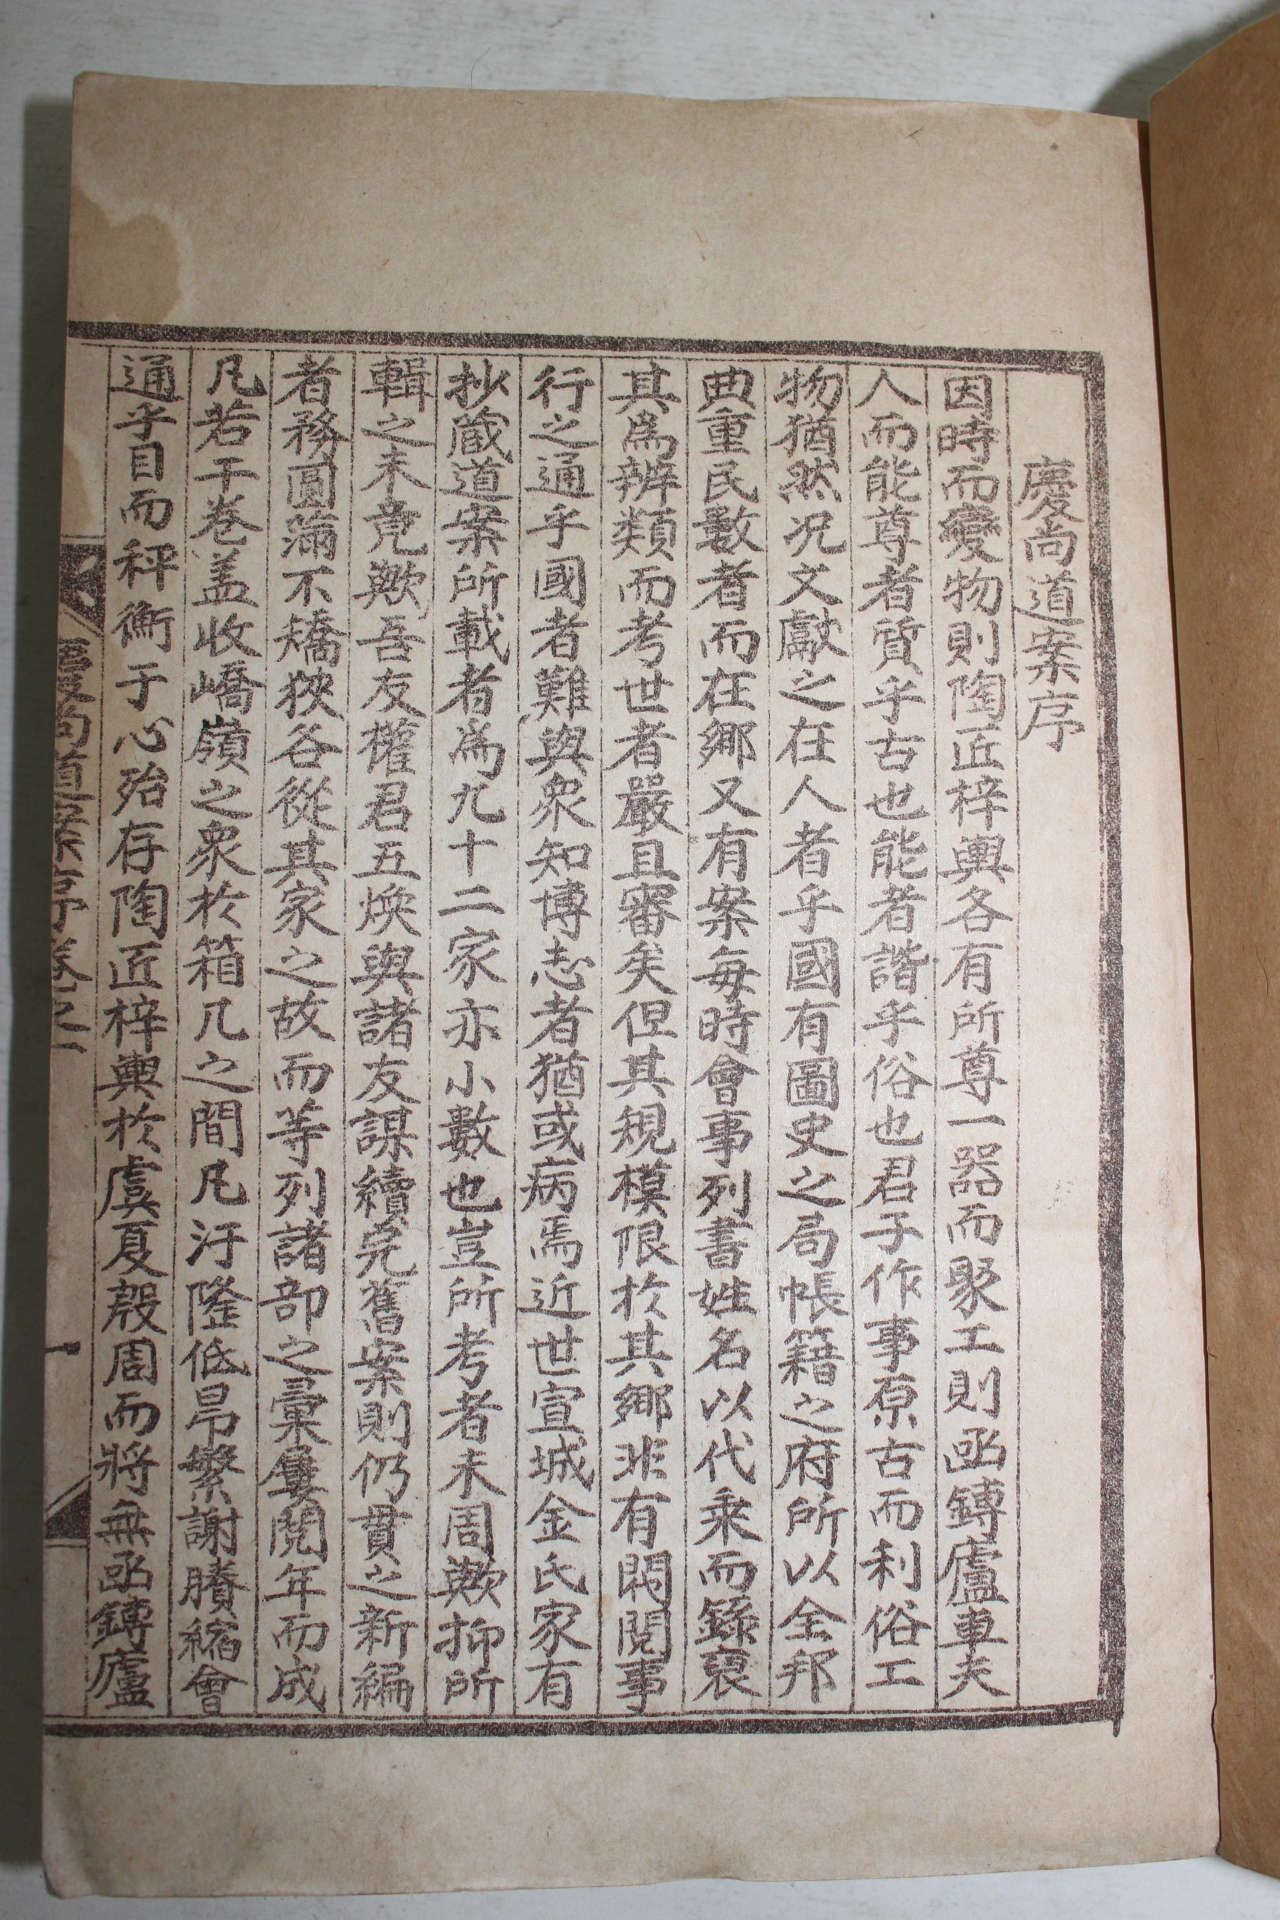 慶尚道案序
因時而變物則陶匠梓輿各有所尊一器而聚工則凾鏄廬車夫
人而能尊者質乎古也能者諧乎俗也君子作事原古而利俗工
物猶然况文獻之在人者乎國有圖史之局帳籍之府所以全邦
典重民數者而在鄉又有案每時會事列書姓名以代乘而錄裒
其爲辨類而考世者嚴且審矣但其規模限於其鄉非有閥閱事
行之通乎國者難與衆知博志者猶或病焉近世宣城金氏家有
抄蔵道案所載者爲九十二家亦小數也豈所考者未周歟抑所
輯之未竟歟吾友權君五煥與諸友謀續完舊案則仍貫之新編
者務圓滿不矯狹各從其家之故而等列諸部之彙屢閱年而成
凡若干卷盖收嶠嶺之衆於箱几之間凡汙隆低昂繁謝賸縮會
通乎目而秤衡于心殆存陶匠梓輿於虞夏殷周而將無凾鏄廬
慶尚道案序卷之一
一